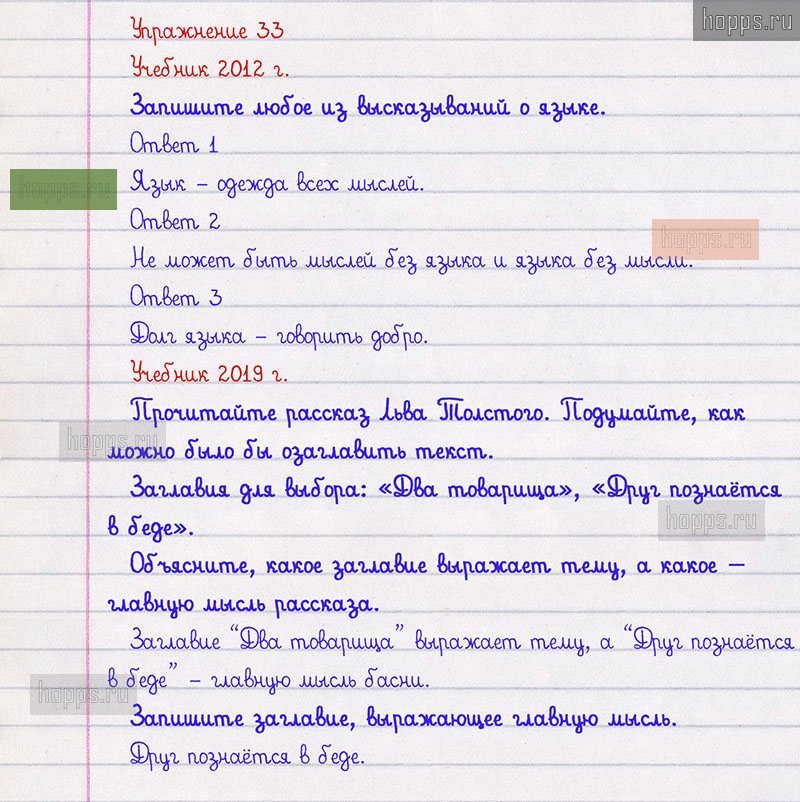 hopps.ru
Упражнение 33
Учебник 2012 г.
Запишите любое из высказываний о языке.
Ответ 1
hopps.ru
Язык – одежда всех мыслей.
Ответ 2
hopps.ru
Не может быть мыслей без языка и языка без мысли.
Ответ 3
Долг языка – говорить добро.
Учебник 2019 г.
Прочитайте рассказ Льва Толстого. Подумайте, как
hopps.ru
можно было бы озаглавить текст.
Заглавия для выбора: «Два товарища», «Друг познаётся
hopps.ru
в беде».
Объясните, какое заглавие выражает тему, а какое —
главную мысль рассказа.
Заглавие “Два товарища” выражает тему, а “Друг познаётся
в беде” – главную мысль басни.
hopps.ru
Запишите заглавие, выражающее главную мысль.
Друг познаётся в беде.